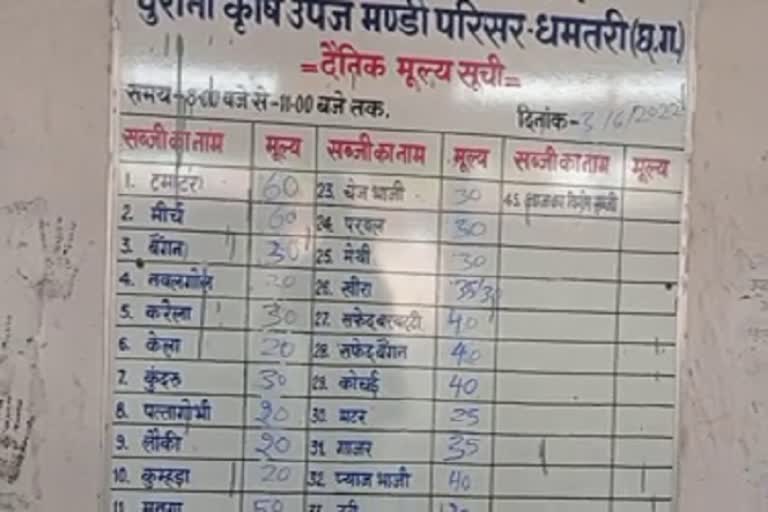 पुरानी कृषि उपज मण्डी परिसर-धमतरी(छ.ग.)
=दैनिक मूल्य सूची=
समय-8:00 बजे से-11-00 बजे तक. दिनांक-3/6/2022
सब्जी का नाम मूल्य सब्जी का नाम मूल्य सब्जी का नाम मूल्य
1. टमाटर 60 23. चेज भाजी 30 45.
2. मीर्च 60 24. परवल 30
3. बैंगन 30 25. मेथी 30
4. नवलगोल 20 26. खीरा 35/30
5. करेला 30 27. सफेद बरबट्टी 40
6. केला 20 28. सफेद बैंगन 40
7. कुंदरु 30 29. कोचई 40
8. पत्तागोभी 20 30. मटर 25
9. लौकी 20 31. गाजर 35
10. कुम्हड़ा 20 32. प्याज भाजी 40
11. मुनगा 50